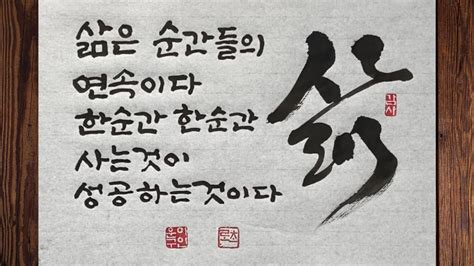 삶은 순간들의
연속이다
한순간 한순간
사는것이
성공하는것이다
삶